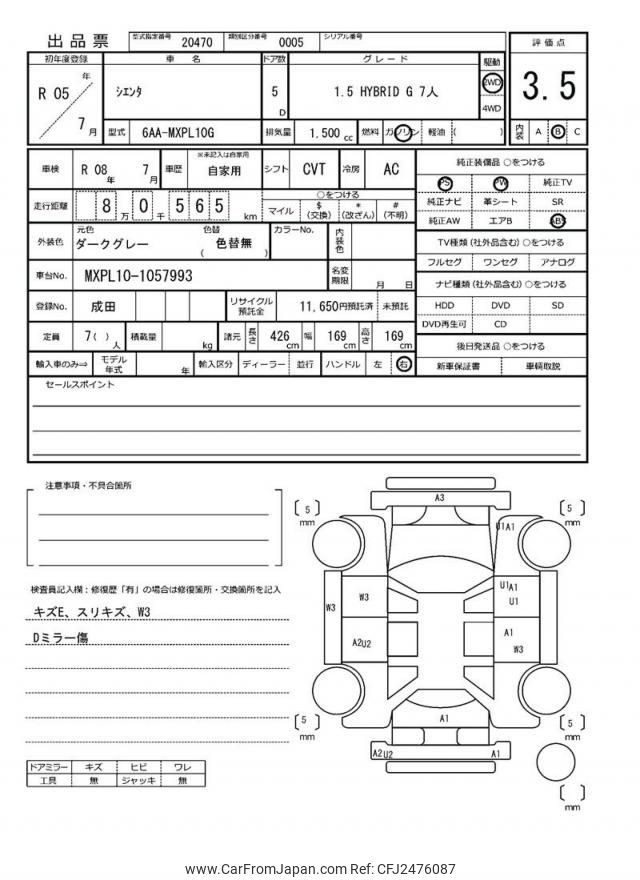 出品票 型式指定番号 20470 類別区分番号 0005 シリアル番号
初年度登録 車名 ドア数 グレード 駆動 評価点
R 05 年 シエンタ 5 D 1.5 HYBRID G 7人 2WD 3.5
7 月 4WD
型式 6AA-MXPL10G 排気量 1,500 cc 燃料 ガソリン 軽油 ( ) 内装 A B C
車検 R 08 年 7 月 車歴 ※未記入は自家用 自家用 シフト CVT 冷房 AC
走行距離 8 万 0 千 5 6 5 km
○をつける
マイル $ (交換) * (改ざん) # (不明)
外装色 元色 ダークグレー 色替 色替無 ( ) カラーNo. 内装色
車台No. MXPL10-1057993 名変期限 月 日
登録No. 成田 リサイクル預託金 11,650円預託済 未預託
定員 7( ) 人 積載量 kg 諸元 長さ 426 cm 幅 169 cm 高さ 169 cm
輸入車のみ⇒ モデル年式 年 輸入区分 ディーラー 並行 ハンドル 左 右
純正装備品 ○をつける
PS PW 純正TV
純正ナビ 革シート SR
純正AW エアB ABS
TV種類(社外品含む)○をつける
フルセグ ワンセグ アナログ
ナビ種類(社外品含む)○をつける
HDD DVD SD
DVD再生可 CD
後日発送品 ○をつける
新車保証書 車輌取説
セールスポイント
注意事項・不具合箇所
検査員記入欄：修復歴「有」の場合は修復箇所・交換箇所を記入
キズE、スリキズ、W3
Dミラー傷
ドアミラー キズ ヒビ ワレ
工具 無 ジャッキ 無
[ 5 ] mm
A3
[ 5 ] mm
U1A1
W3
W3
U1A1
U1
A2U2
A1
W3
[ 5 ] mm
A1
[ 5 ] mm
A2U2
A1
[ ] mm
www.CarFromJapan.com Ref: CFJ2476087